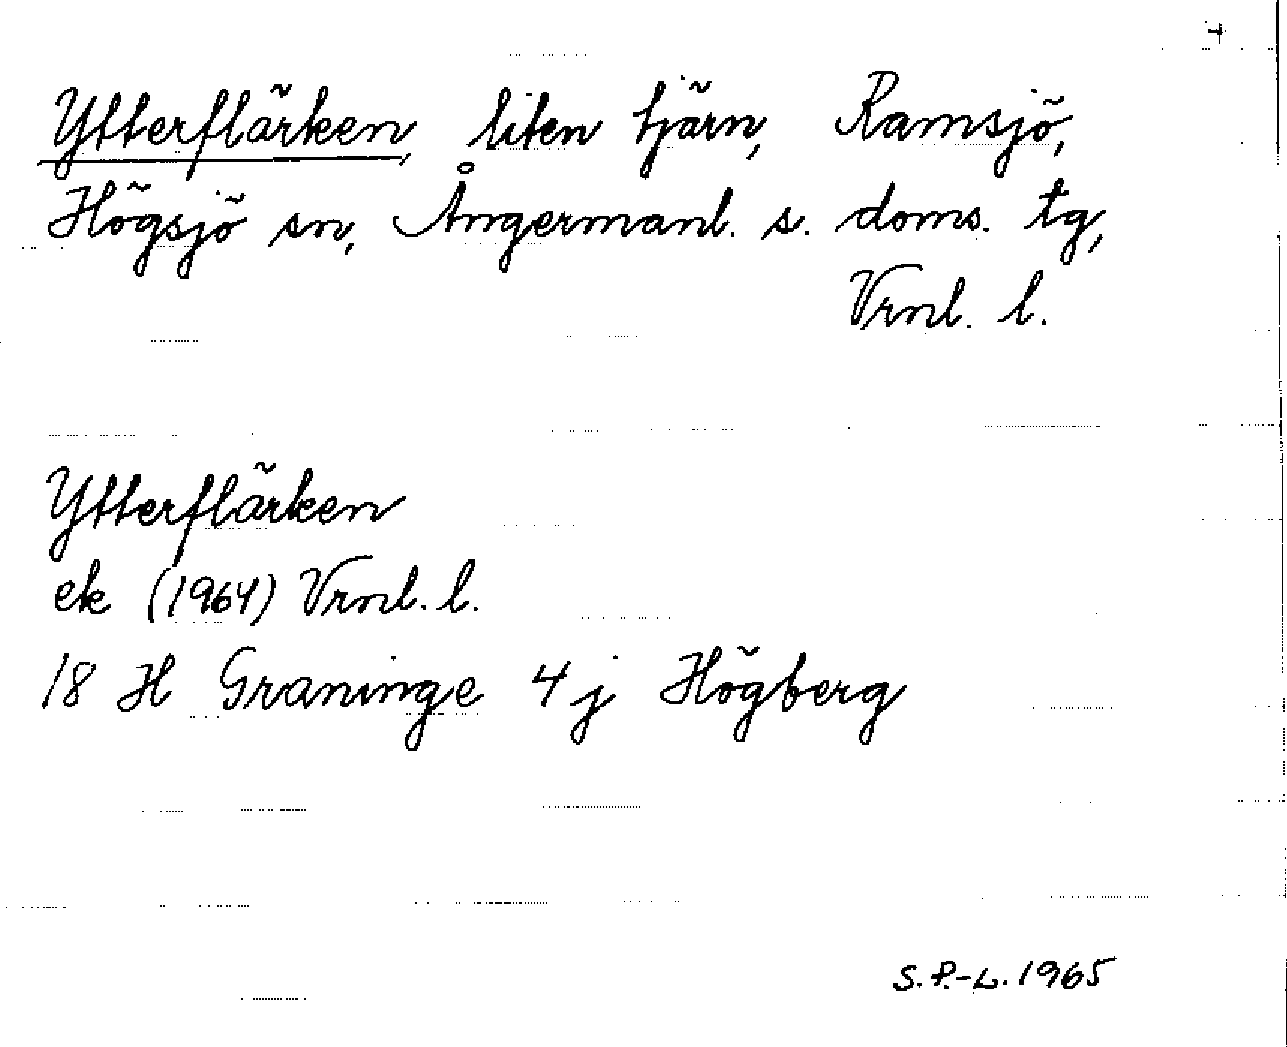 Ytterflärken, liten tjärn, Ramsjö,
Högsjö sn, Ångermanl. s. doms. tg,
Vrnl. l.
Ytterflärken
ek (1964) Vrnl. l.
18 H Graninge 4 j Högberg
S.P.-L. 1965